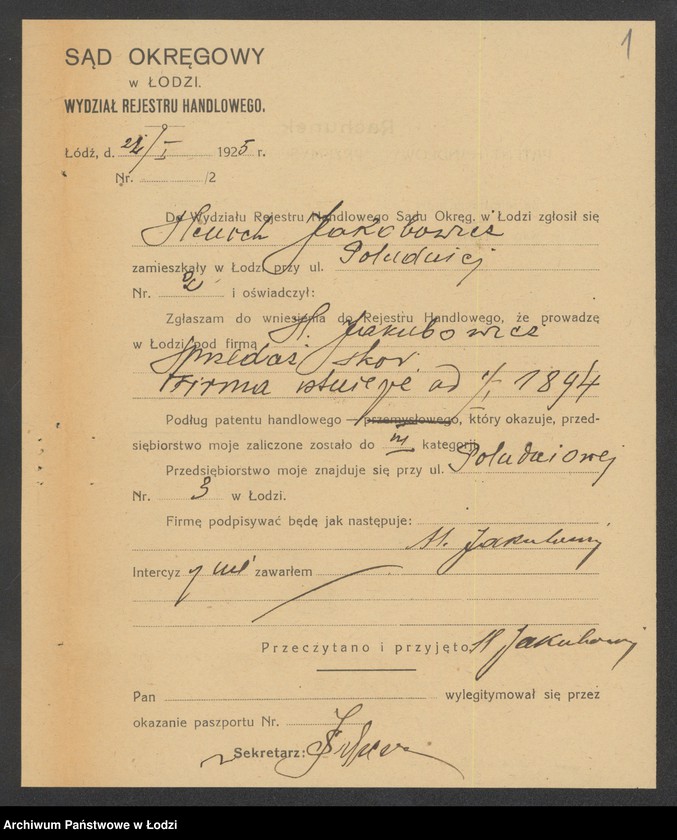 1
SĄD OKRĘGOWY
w ŁODZI.
WYDZIAŁ REJESTRU HANDLOWEGO.
Łódź, d. I 1925 r.
Nr. /2
Do Wydziału Rejestru Handlowego Sądu Okręg. w Łodzi zgłosił się
Henoch Jakubowicz
zamieszkały w Łodzi przy ul. Południej
Nr. i oświadczył:
Zgłaszam do wniesienia do Rejestru Handlowego, że prowadzę
w Łodzi pod firmą H. Jakubowicz
Sprzedaż skór.
Firma istnieje od 1/I 1894
Podług patentu handlowego — przemysłowego, który okazuje, przed-
siębiorstwo moje zaliczone zostało do III kategorji.
Przedsiębiorstwo moje znajduje się przy ul. Południowej
Nr. 3 w Łodzi.
Firmę podpisywać będę jak następuje:
H. Jakubowicz
Intercyzy nie zawarłem
Przeczytano i przyjęto H Jakubowicz
Pan wylegitymował się przez
okazanie paszportu Nr.
Sekretarz:
Archiwum Państwowe w Łodzi